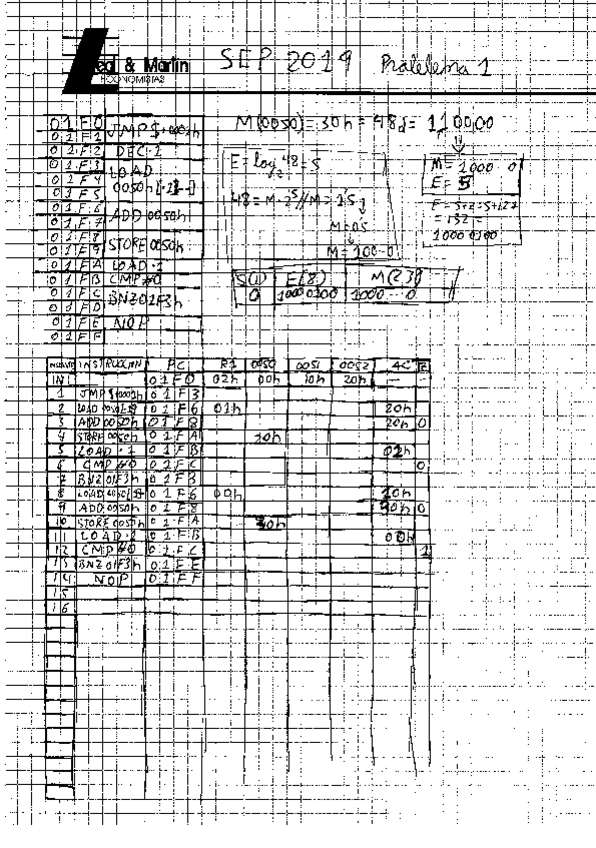 eal & Martin
ECONOMISTAS
SEP 2019 Problema 1
01F0 JMP $+0002h
01F1
01F2 DEC ·1
01F3 LOAD
01F4 0050h
01F5
01F6 ADD 0050h
01F7
01F8 STORE 0050h
01F9
01FA LOAD ·1
01FB CMP #0
01FC BNZ 01F3h
01FD
01FE NOP
01FF
M(0050) = 30h = 48d = 110000
E = log₂ 48 = 5
M = 1000 0
E = 5
1000 0100
M = 100--0
S(1) E(8) M(23)
0 10000100 1000 -- 0
INSTRUCCION PC R1 0050 0051 0052 AC
INI 01F0 02h 00h 10h 20h - -
1 JMP $+0002h 01F3
2 01F6 01h 20h
3 ADD 0050h 01F8 20h 0
4 STORE 0050h 01FA 20h
5 LOAD ·1 01FB 02h
6 CMP #0 01FC 0
7 BNZ 01F3h 01F3
8 01F6 00h 10h
9 ADD 0050h 01F8 30h 0
10 STORE 0050h 01FA 30h
11 LOAD ·1 01FB 00h
12 CMP #0 01FC 1
13 BNZ 01F3h 01FE
14 NOP 01FF
15
16